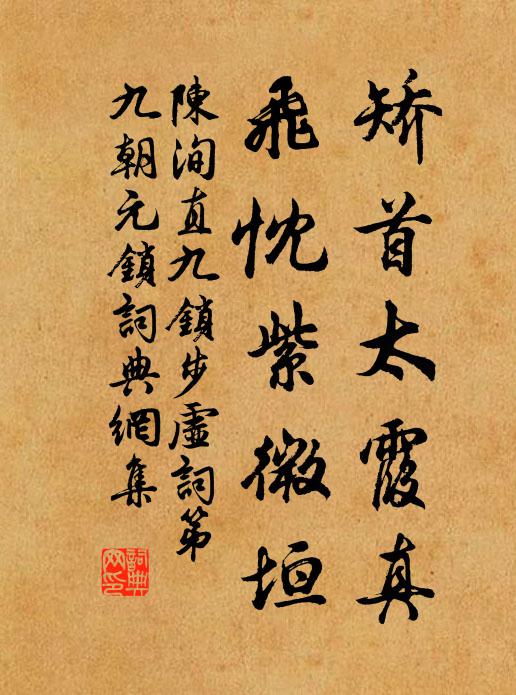 矯首太霞真
飛忱紫微垣
陳洵直九鎖步虛詞第
九朝元鎖詞典網集
詞典網印